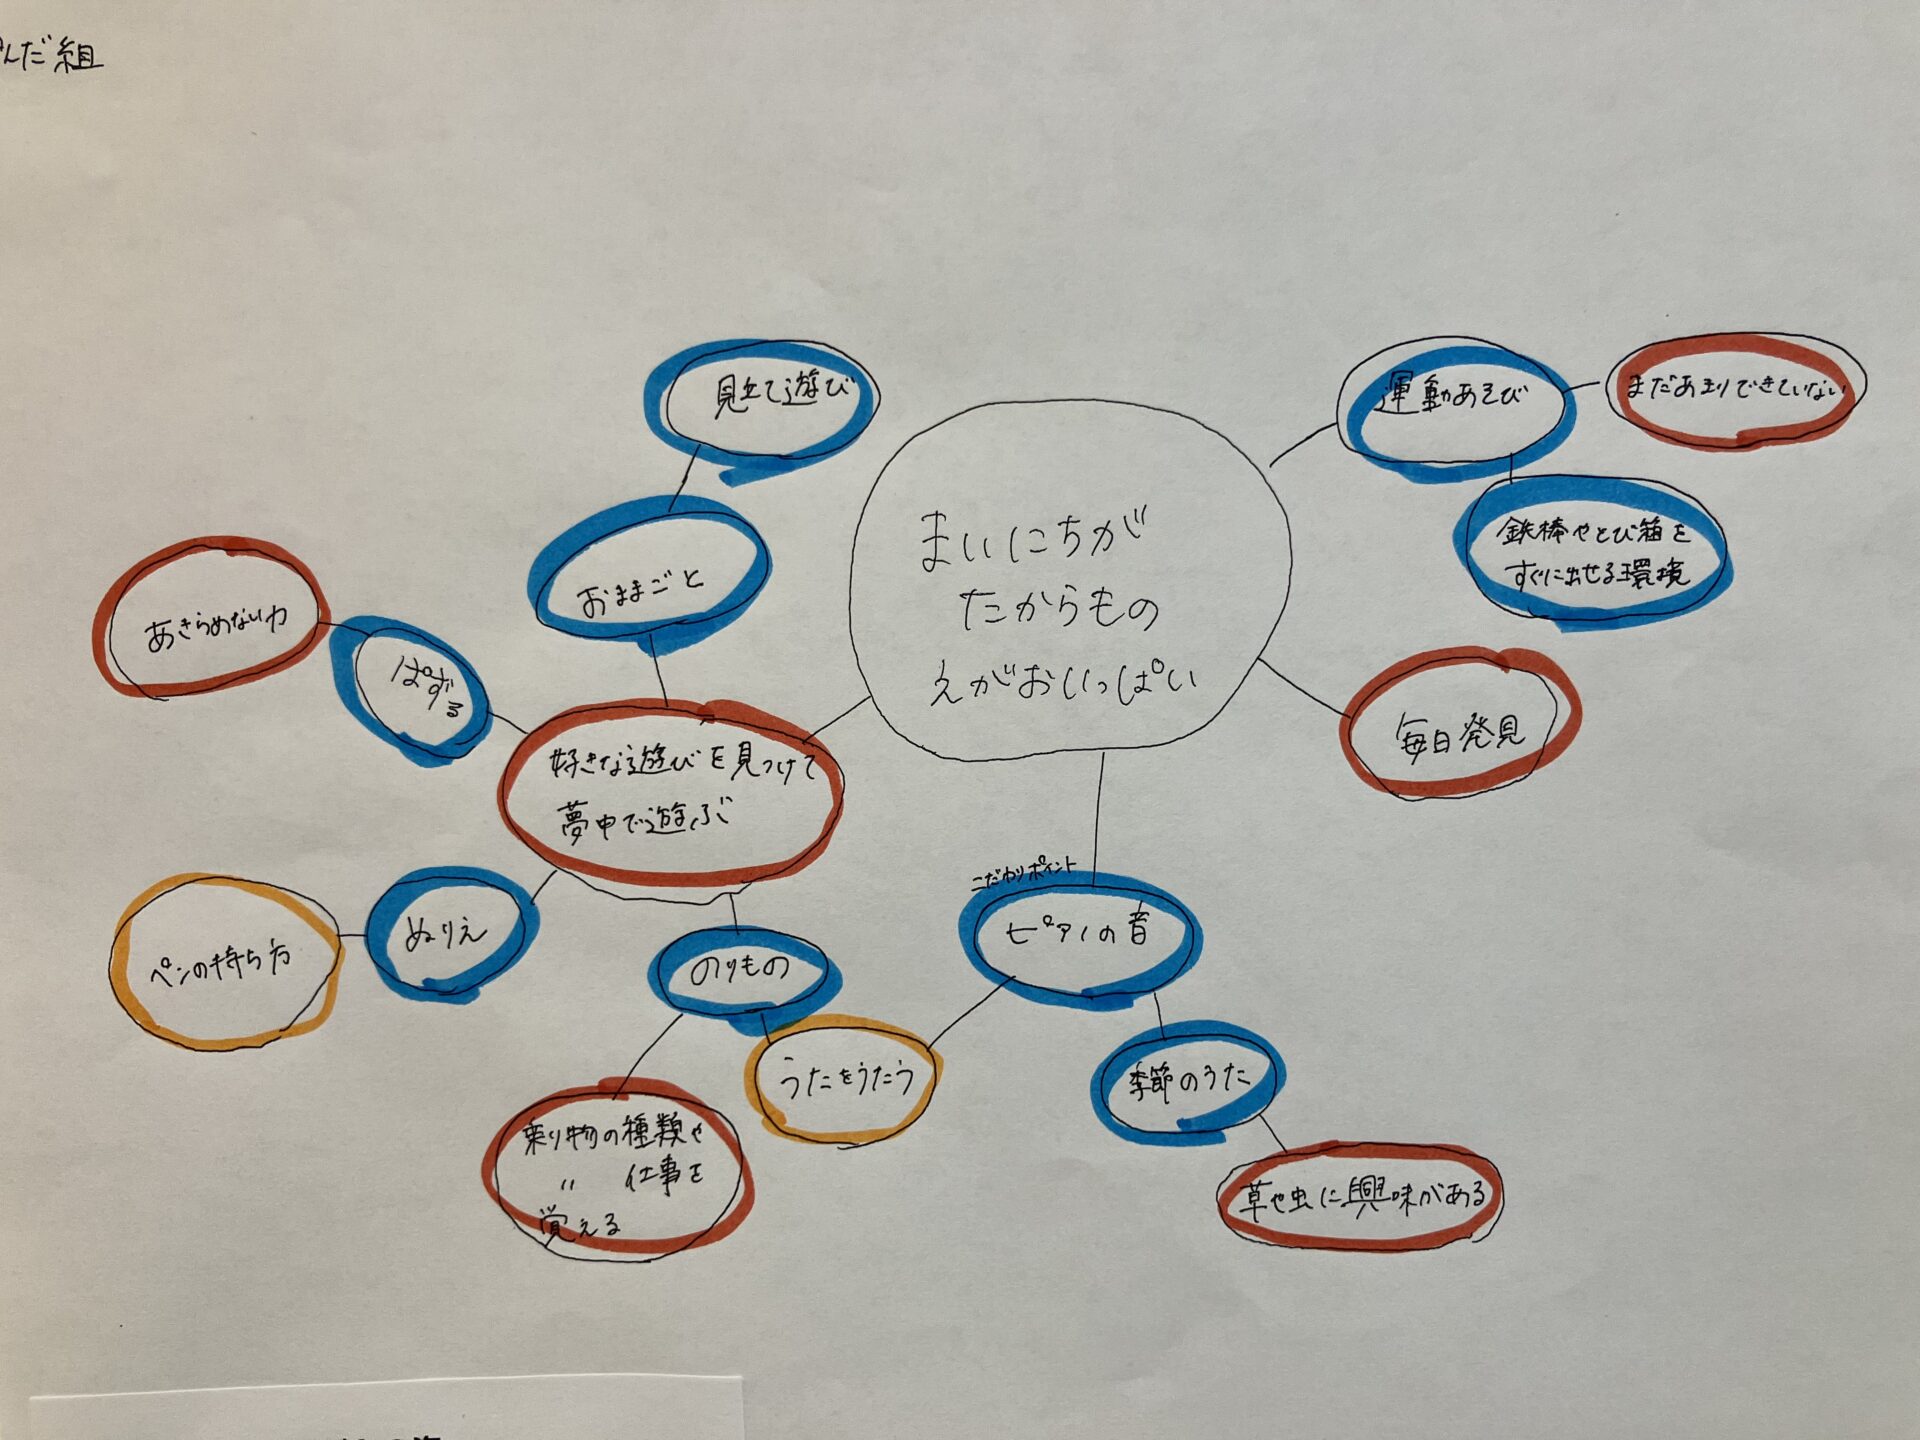 んだ組
見立て遊び
運動あそび
まだあまりできていない
鉄棒やとび箱を
すぐに出せる環境
まいにちが
たからもの
えがおいっぱい
おままごと
あきらめない力
ぱずる
毎日発見
好きな遊びを見つけて
夢中で遊ぶ
こだわりポイント
ピアノの音
ぬりえ
ペンの持ち方
のりもの
うたをうたう
季節のうた
乗り物の種類や
〃 仕事を
覚える
草や虫に興味がある